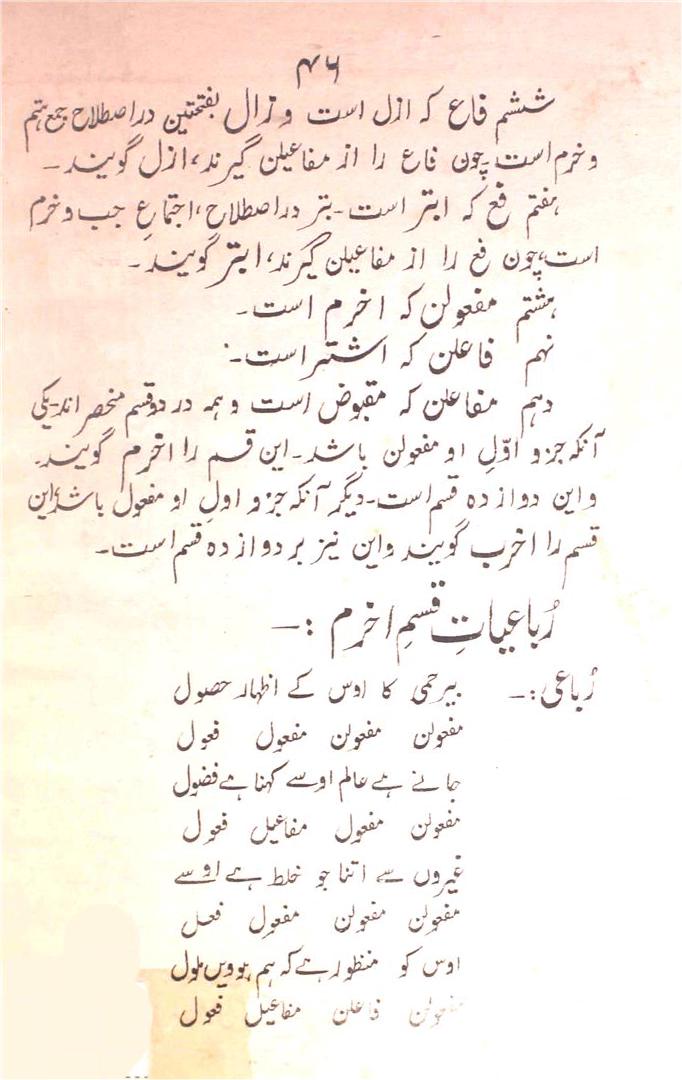 ۴۶
ششم فاع که ازل است و زال بفتحتین در اصطلاح جمع ہتم
و خرم است۔ چون فاع را از مفاعیلن گیرند، ازل گویند۔
ہفتم فع که ابتر است۔ بتر در اصطلاح، اجتماعِ جب و خرم
است، چون فع را از مفاعیلن گیرند، ابتر گویند۔
ہشتم مفعولن که اخرم است۔
نہم فاعلن که اشتر است۔
دہم مفاعلن که مقبوض است و ہمہ در دو قسم منحصر اند۔ یکی
آنکه جزو اوّلِ او مفعولن باشد۔ این قسم را اخرم گویند۔
و این دوازدہ قسم است۔ دیگر آنکه جزو اولِ او مفعول باشد، این
قسم را اخرب گویند و این نیز بر دوازدہ قسم است۔
رُباعیاتِ قسمِ اخرم :—
رُباعی :— بیرحمی کا اوس کے اظہار حصول
مفعولن مفعولن مفعول فعول
جانے ہے عالم اوسے کہنا ہے فضول
مفعولن مفعول مفاعیل فعول
غیروں سے اتنا جو خلط ہے اوسے
مفعولن مفعولن مفعول فعل
اوس کو منظور ہے کہ ہم ہوویں ملول
مفعولن فاعلن مفاعیل فعول